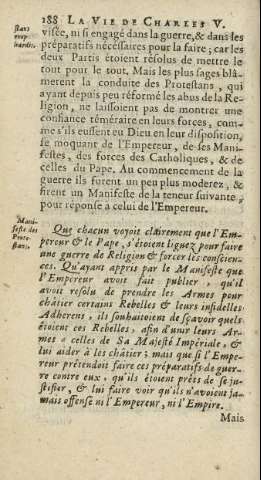 188 LA VIE DE CHARLES V.
stans
trop
hardis.
visée, ni si engagé dans la guerre, & dans les
préparatifs nécéssaires pour la faire; car les
deux Partis étoient résolus de mettre le
tout pour le tout. Mais les plus sages blâ-
merent la conduite des Protestans, qui
ayant depuis peu réformé les abus de la Re-
ligion, ne laissoient pas de montrer une
confiance téméraire en leurs forces, com-
me s'ils eussent eu Dieu en leur disposition,
se moquant de l'Empereur, de ses Mani-
festes, des forces des Catholiques, & de
celles du Pape. Au commencement de la
guerre ils furent un peu plus moderez, &
firent un Manifeste de la teneur suivante,
pour réponse à celui de l'Empereur.
Mani-
feste des
Prote-
stans.
Que chacun voyoit clairement que l'Em-
pereur & le Pape, s'étoient liguez pour faire
une guerre de Religion & forcer les conscien-
ces. Qu'ayant appris par le Manifeste que
l'Empereur avoit fait publier, qu'il
avoit résolu de prendre les Armes pour
châtier certains Rebelles & leurs infidelles
Adherens, ils souhaitoient de sçavoir quels
étoient ces Rebelles, afin d'unir leurs Ar-
mes à celles de Sa Majesté Impériale, &
lui aider à les châtier; mais que si l'Empe-
reur prétendoit faire ces préparatifs de guer-
re contre eux, qu'ils étoient prêts de se ju-
stifier, & lui faire voir qu'ils n'avoient ja-
mais offensé ni l'Empereur, ni l'Empire.
Mais